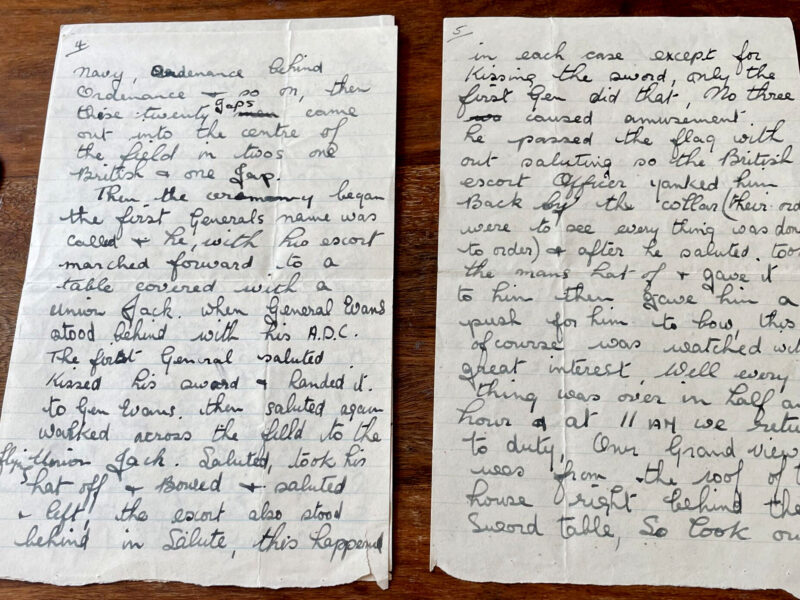 4
navy, Ordenance behind
Ordenance & so on, then
these twenty Japs men came
out into the centre of
the field in twos one
British & one Jap.
Then the ceremony began
the first Generals name was
called & he, with his escort
marched forward to a
table covered with a
Union Jack. when General Evans
stood behind with his A.D.C.
The first General saluted
Kissed his sword & handed it
to Gen Evans, then saluted again
walked across the field to the
Union Jack. Saluted, took his
hat off & Bowed & saluted
& left, the escort also stood
behind in Salute, this happened
5
in each case except for
Kissing the sword, only the
first Gen did that, No three
caused amusement.
he passed the flag with
out saluting so the British
escort Officer yanked him
Back by the collar (their ord
were to see every thing was don
to order) & after he saluted. too
the mans hat of & gave it
to him then gave him a
push for him to bow, this
of course was watched wit
great interest, Well every
thing was over in half an
hour & at 11 AM we retu
to duty, Our Grand view
was from the roof of t
house right behind the
Sword table, So look ou